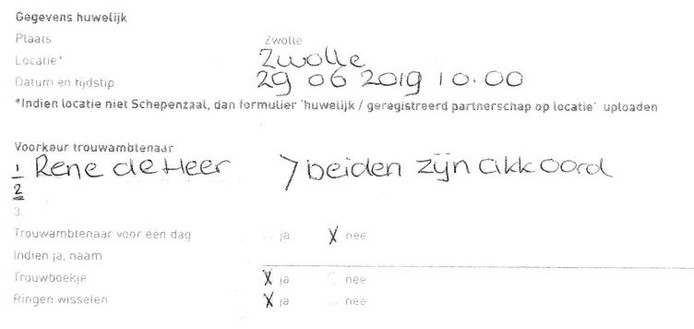 Gegevens huwelijk
Plaats Zwolle
Locatie* Zwolle
Datum en tijdstip 29 06 2019 10.00
*Indien locatie niet Schepenzaal, dan formulier 'huwelijk / geregistreerd partnerschap op locatie' uploaden
Voorkeur trouwambtenaar
1 Rene de Heer > beiden zijn akkoord
2
3
Trouwambtenaar voor een dag ja X nee
Indien ja, naam
Trouwboekje X ja nee
Ringen wisselen X ja nee